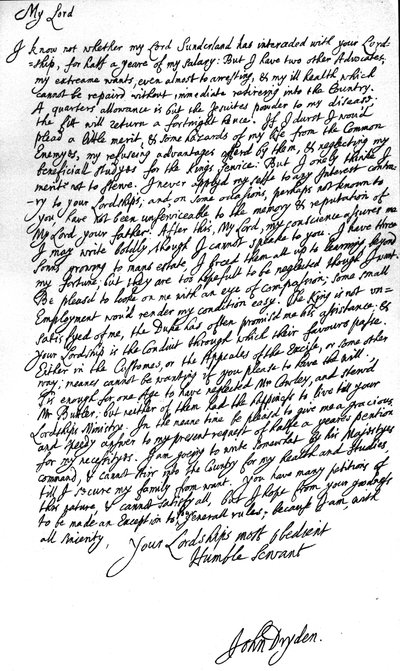 My Lord
I know not whether my Lord Sunderland has interceded with your Lord-
=ship, for half a yeare of my salary: But I have two other Advocates,
my extreame wants, even almost to arresting, & my ill health, which
cannot be repaird without immediate retireing into the Country.
A quarters allowance is but the Jesuites powder to my disease;
the fitt will return a fortnight hence. If I durst I wou'd
plead a little merit, & some hazards of my life from the Common
Enemyes, my refuseing advantages offerd by them, & neglecting my
beneficiall studyes for the King's service: But I onely thinke I
merit not to sterve. I never applyd my selfe to any Interest contra-
ry to your Lordship's; and on some occasions, perhaps not known to
you, have not been unserviceable to the memory & reputation of
My Lord your father. After this, My Lord, my conscience assures me
I may write boldly, though I cannot speake to you. I have three
Sonns growing to mans estate, I breed them all up to learning, beyond
my fortune; but they are too hopefull to be neglected though I want.
Be pleasd to looke on me with an eye of compassion; some small
Employment wou'd render my condition easy. The King is not un=
satisfyed of me, the Duke has often promisd me his assistance; &
Your Lordship is the Conduit through which their favours passe.
Either in the Customes, or the Appeales of the Excise, or some other
way; meanes cannot be wanting if you please to have the will.
Tis enough for one Age to have neglected Mr Cowley, and sterv'd
Mr Butler; but neither of them had the happiness to live till your
Lordship's Ministry. In the meane time be pleasd to give me a gracious
and speedy answer to my present request of halfe a yeares Pention
for my necessityes. I am goeing to write somewhat by his Majestyes
command, & cannot stirr into the Country for my health and studies,
till I secure my family from want. You have many petitions of
this nature, & cannot satisfy all, but I hope from your goodness
to be made an Exception to your generall rules; because I am, with
all sincerity,
Your Lordships most obedient
Humble Servant
John Dryden.